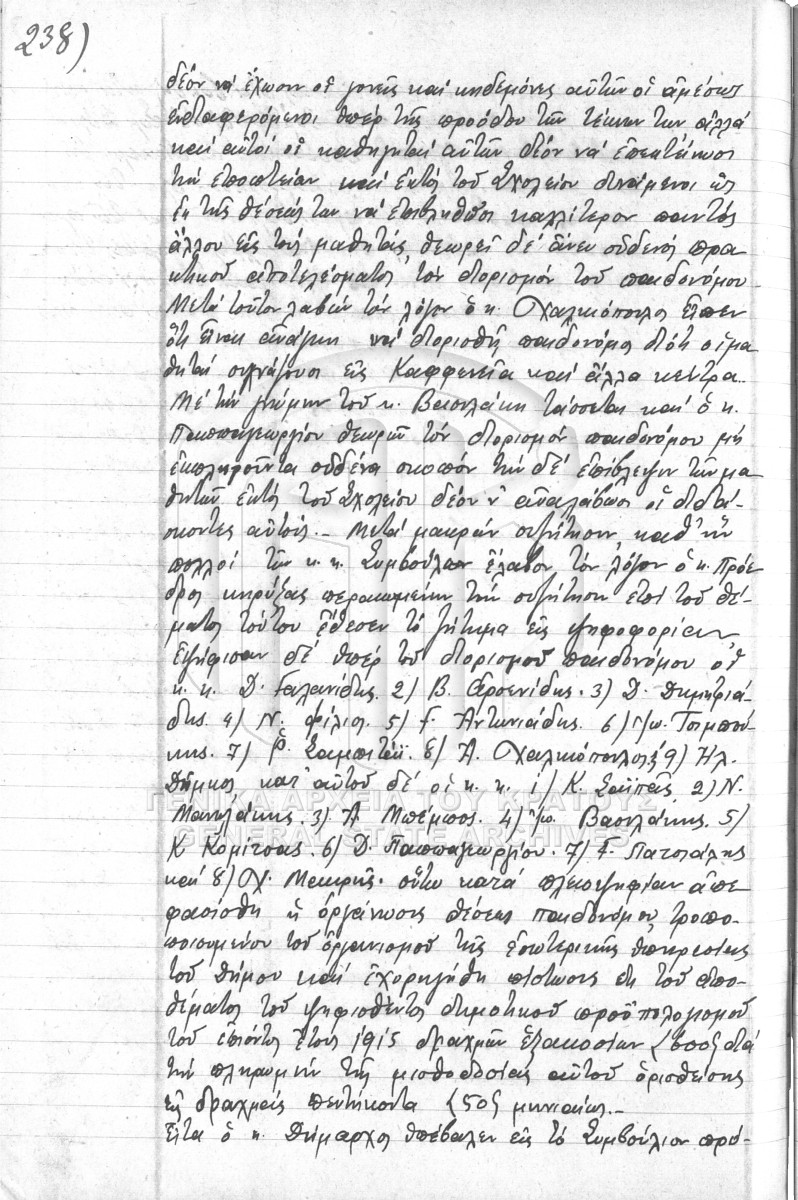 238)
δέον νά ἔχωσιν οἱ γονεῖς καί κηδεμόνες αὐτῶν οἱ ἀμέσως
ἐνδιαφερόμενοι ὑπέρ τῆς προόδου τῶν τέκνων των, ἀλλά
καί αὐτοί οἱ καθηγηταί αὐτῶν δέον νά ἐπεκτείνωσι
τήν ἐποπτείαν καί ἐκτός τοῦ Σχολείου δυνάμενοι ὡς
ἐκ τῆς θέσεώς των νά ἐπιβληθῶσι καλλίτερον παντός
ἄλλου εἰς τούς μαθητάς, θεωρεῖ δέ ἄνευ οὐδενός πρα-
κτικοῦ ἀποτελέσματος τόν διορισμόν τοῦ παιδονόμου.
Μετά τοῦτον λαβών τόν λόγον ὁ κ. Χαλκιόπουλος εἶπεν
ὅτι εἶναι ἀνάγκη νά διορισθῇ παιδονόμος διότι οἱ μα-
θηταί συχνάζουσι εἰς Καφφενεῖα καί ἄλλα κέντρα.
Μέ τήν γνώμην τοῦ κ. Βασιλάκη τάσσεται καί ὁ κ.
Παππαγεωργίου θεωρῶν τόν διορισμόν παιδονόμου μή
ἐκπληροῦντα οὐδένα σκοπόν τήν δέ ἐπίβλεψιν τῶν μα-
θητῶν ἐκτός τοῦ Σχολείου δέον ν' ἀναλάβωσι οἱ διδά-
σκοντες αὐτούς.- Μετά μακράν συζήτησιν, καθ' ἥν
πολλοί τῶν κ.κ. Συμβούλων ἔλαβον τόν λόγον ὁ κ. Πρόε-
δρος κηρύξας περαιωμένην τήν συζήτησιν ἐπί τοῦ θέ-
ματος τούτου ἔθεσεν τό ζήτημα εἰς ψηφοφορίαν.
Ἐψήφισαν δέ ὑπέρ τοῦ διορισμοῦ παιδονόμου οἱ
κ. κ. Δ. Γαλανίδης. 2) Β. Ἀρσενίδης. 3) Δ. Δημητριά-
δης. 4) Ν. Φίλιος. 5) Γ. Ἀντωνιάδης. 6) Γεω. Τσιμπού-
κης. 7) Ρ. Σαμπετάϊ. 8) Α. Χαλκιόπουλος 9) Ηλ.
Δῆμος κατ' αὐτοῦ δέ οἱ κ. κ. 1) Κ. Σαϊπᾶς. 2) Ν.
Μανωλάκης. 3) Α Μπέμπος. 4) Γεω. Βασιλάκης. 5)
Κ Κομίτσας. 6) Δ. Παππαγεωργίου. 7) Γ. Πατσιάλης
καί 8) Χ. Μακρῆς. οὕτω κατά πλειοψηφίαν ἀπε-
φασίσθη ἡ ὀργάνωσις θέσεως παιδονόμου, τροπο-
ποιουμένου τοῦ ὀργανισμοῦ τῆς ἐσωτερικῆς ὑπηρεσίας
τοῦ Δήμου καί ἐχορηγήθη πίστωσις ἐκ τοῦ ἀπο-
θέματος τοῦ ψηφισθέντος δημοτικοῦ προϋπολογισμοῦ
τοῦ ἐπιόντος ἔτους 1915 δραχμῶν ἑξακοσίων (600) διά
τήν πληρωμήν τῆς μισθοδοσίας αὐτοῦ ὁρισθείσης
εἰς δραχμάς πεντήκοντα (50) μηνιαίως.-
Εἶτα ὁ κ. Δήμαρχος ὑπέβαλεν εἰς τό Συμβούλιον πρό-
ΓΕΝΙΚΑ ΑΡΧΕΙΑ ΤΟΥ ΚΡΑΤΟΥΣ
GENERAL STATE ARCHIVES